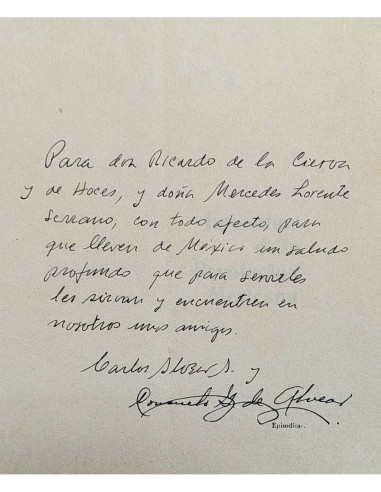 Para don Ricardo de la Cierva
y de Hoces, y doña Mercedes Lorente
Serrano, con todo afecto, para
que lleven de México un saludo
profundo que para serviles
les sirvan y encuentren en
nosotros unos amigos.
Carlos Alvear A. y
Consuelo G. de Alvear
Episodica-.